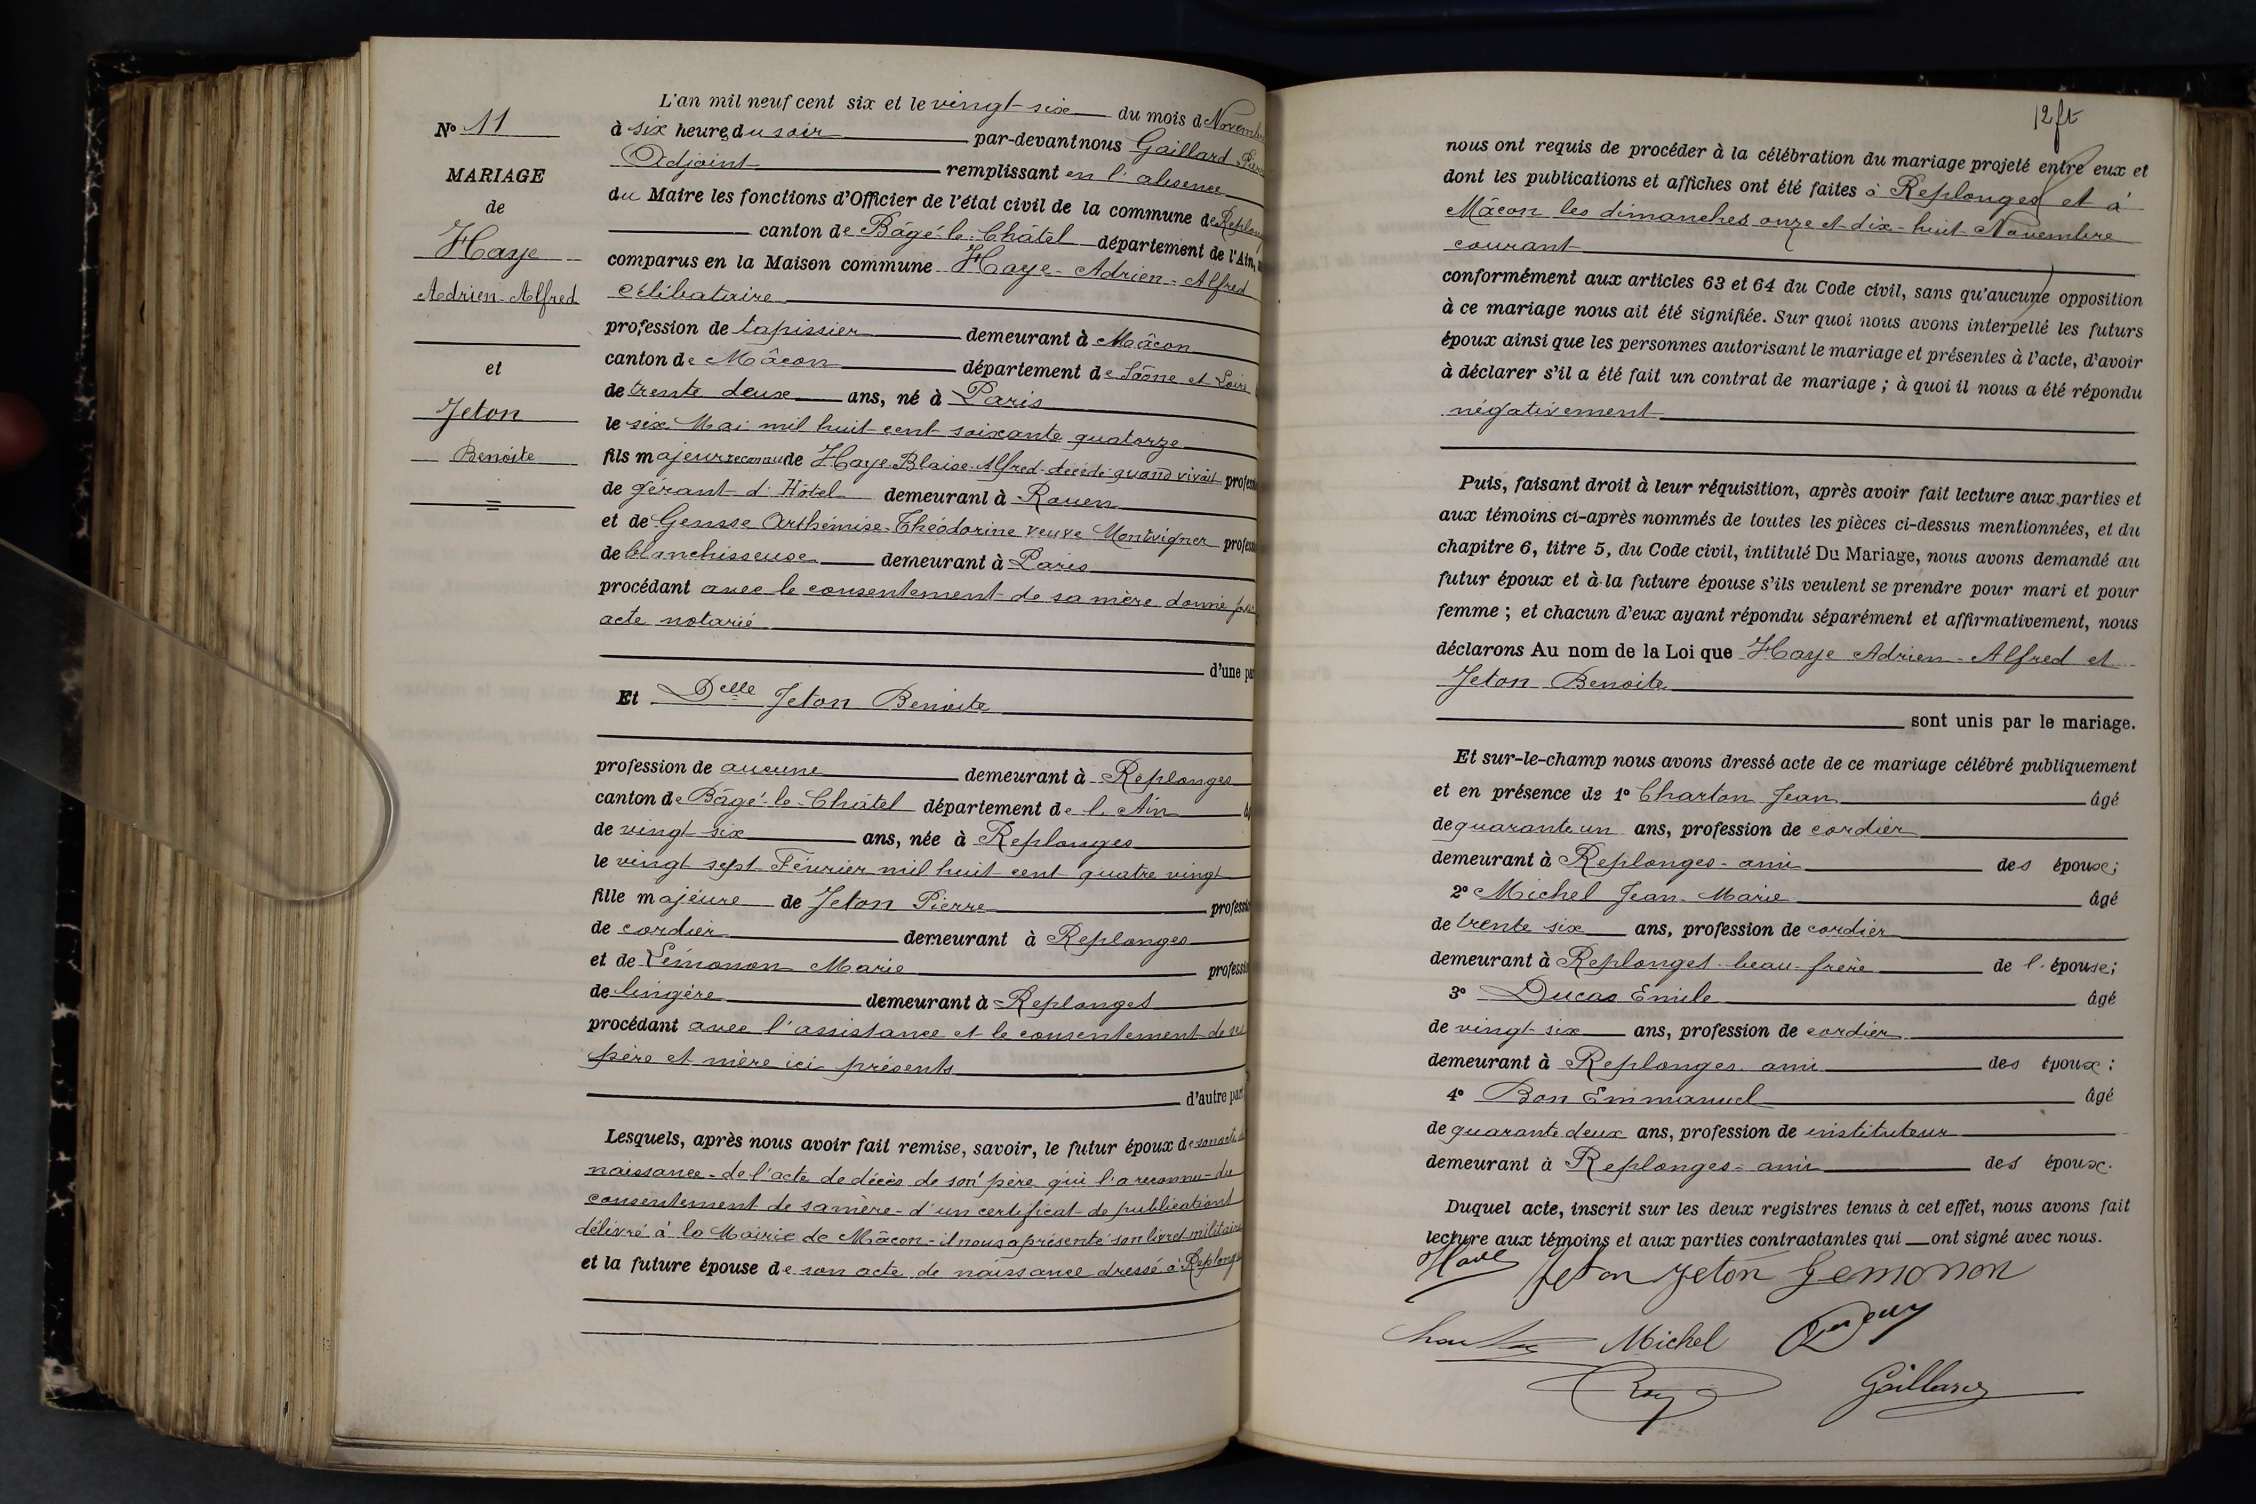 N° 11
MARIAGE
de
Haye
Adrien-Alfred
et
Jeton
Benoite
L'an mil neuf cent six et le vingt-six du mois de Novembre
à six heures du soir par-devant nous Gaillard Pierre
Adjoint remplissant en l'absence
du Maire les fonctions d'Officier de l'état civil de la commune de Replonges
canton de Bâgé-le-Châtel département de l'Ain,
comparus en la Maison commune Haye-Adrien-Alfred
célibataire
profession de tapissier demeurant à Mâcon
canton de Mâcon département de Saône et Loire
de trente deux ans, né à Paris
le six Mai mil huit cent soixante quatorze
fils majeur reconnu de Haye Blaise-Alfred-décédé quand vivait profess
de gérant d'Hôtel demeurant à Rouen
et de Arthémise-Théodorine veuve profess
de blanchisseuse demeurant à Paris
procédant avec le consentement de sa mère donné par
acte notarié
d'une par
Et Delle Jeton Benoite
profession de aucune demeurant à Replonges
canton de Bâgé-le-Châtel département de l'Ain âg
de vingt six ans, née à Replonges
le vingt sept Février mil huit cent quatre vingt
fille majeure de Jeton Pierre professio
de cordier demeurant à Replonges
et de Lémonon Marie professio
de lingère demeurant à Replonges
procédant avec l'assistance et le consentement de ses
père et mère ici présents
d'autre part
Lesquels, après nous avoir fait remise, savoir, le futur époux de son acte de
naissance-de l'acte de décès de son père qui l'a reconnu-du
consentement de sa mère-d'un certificat de publications
délivré à la Mairie de Mâcon-il nous a présenté son livret militaire
et la future épouse de son acte de naissance dressé à Replonges
12 ft
nous ont requis de procéder à la célébration du mariage projeté entre eux et
dont les publications et affiches ont été faites à Replonges et à
Mâcon les dimanches onze et dix-huit Novembre
courant
conformément aux articles 63 et 64 du Code civil, sans qu'aucune opposition
à ce mariage nous ait été signifiée. Sur quoi nous avons interpellé les futurs
époux ainsi que les personnes autorisant le mariage et présentes à l'acte, d'avoir
à déclarer s'il a été fait un contrat de mariage ; à quoi il nous a été répondu
négativement
Puis, faisant droit à leur réquisition, après avoir fait lecture aux parties et
aux témoins ci-après nommés de toutes les pièces ci-dessus mentionnées, et du
chapitre 6, titre 5, du Code civil, intitulé Du Mariage, nous avons demandé au
futur époux et à la future épouse s'ils veulent se prendre pour mari et pour
femme ; et chacun d'eux ayant répondu séparément et affirmativement, nous
déclarons Au nom de la Loi que Haye Adrien-Alfred et
Jeton Benoite
sont unis par le mariage.
Et sur-le-champ nous avons dressé acte de ce mariage célébré publiquement
et en présence de 1° Charton Jean âgé
de quarante un ans, profession de cordier
demeurant à Replonges-ami des époux;
2° Michel Jean-Marie âgé
de trente six ans, profession de cordier
demeurant à Replonges-beau-frère de l'épouse;
3° Ducas Emile âgé
de vingt-six ans, profession de cordier
demeurant à Replonges-ami des époux;
4° Bon Emmanuel âgé
de quarante deux ans, profession de instituteur
demeurant à Replonges-ami des époux.
Duquel acte, inscrit sur les deux registres tenus à cet effet, nous avons fait
lecture aux témoins et aux parties contractantes qui ont signé avec nous.
Jeton Jeton Lemonon
Michel
Gaillard